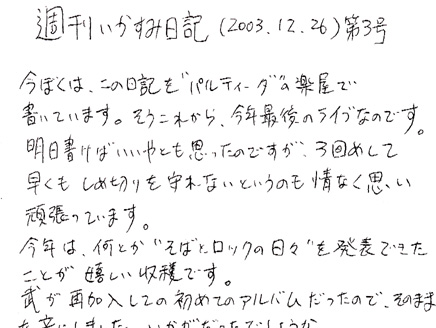 週刊いかすみ日記 (2003.12.26) 第3号
今ぼくは、この日記を"パルティーダ"の楽屋で
書いています。そうこれから、今年最後のライブなのです。
明日書けばいいやとも思ったのですが、3回めして
早くもしめ切りを守れないというのも情なく思い
頑張っています。
今年は、何とか"そばとロックの日々"を発表できた
ことが嬉しい収穫です。
武が再加入しての初めてのアルバムだったので、そのまま